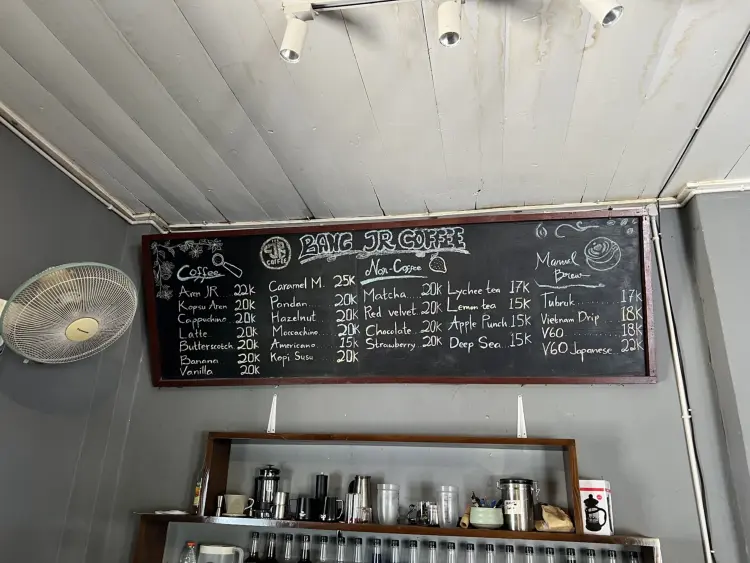 BANG JR COFFEE
JR
COFFEE
Coffee
Aren JR 22k
Kopsu Aren 20k
Cappuchino 20k
Latte 20k
Butterscotch 20k
Banana 20k
Vanilla 20k
Caramel M. 25k
Pandan 20k
Hazelnut 20k
Moccachino 20k
Americano 15k
Kopi Susu 20k
Non-Coffee
Matcha 20k
Red velvet 20k
Chocolate 20k
Strawberry 20k
Lychee tea 17k
Lemon tea 15k
Apple Punch 15k
Deep Sea 15k
Manuel
Brew
Tubruk 17k
Vietnam Drip 18k
V60 18k
V60 Japanese 22k